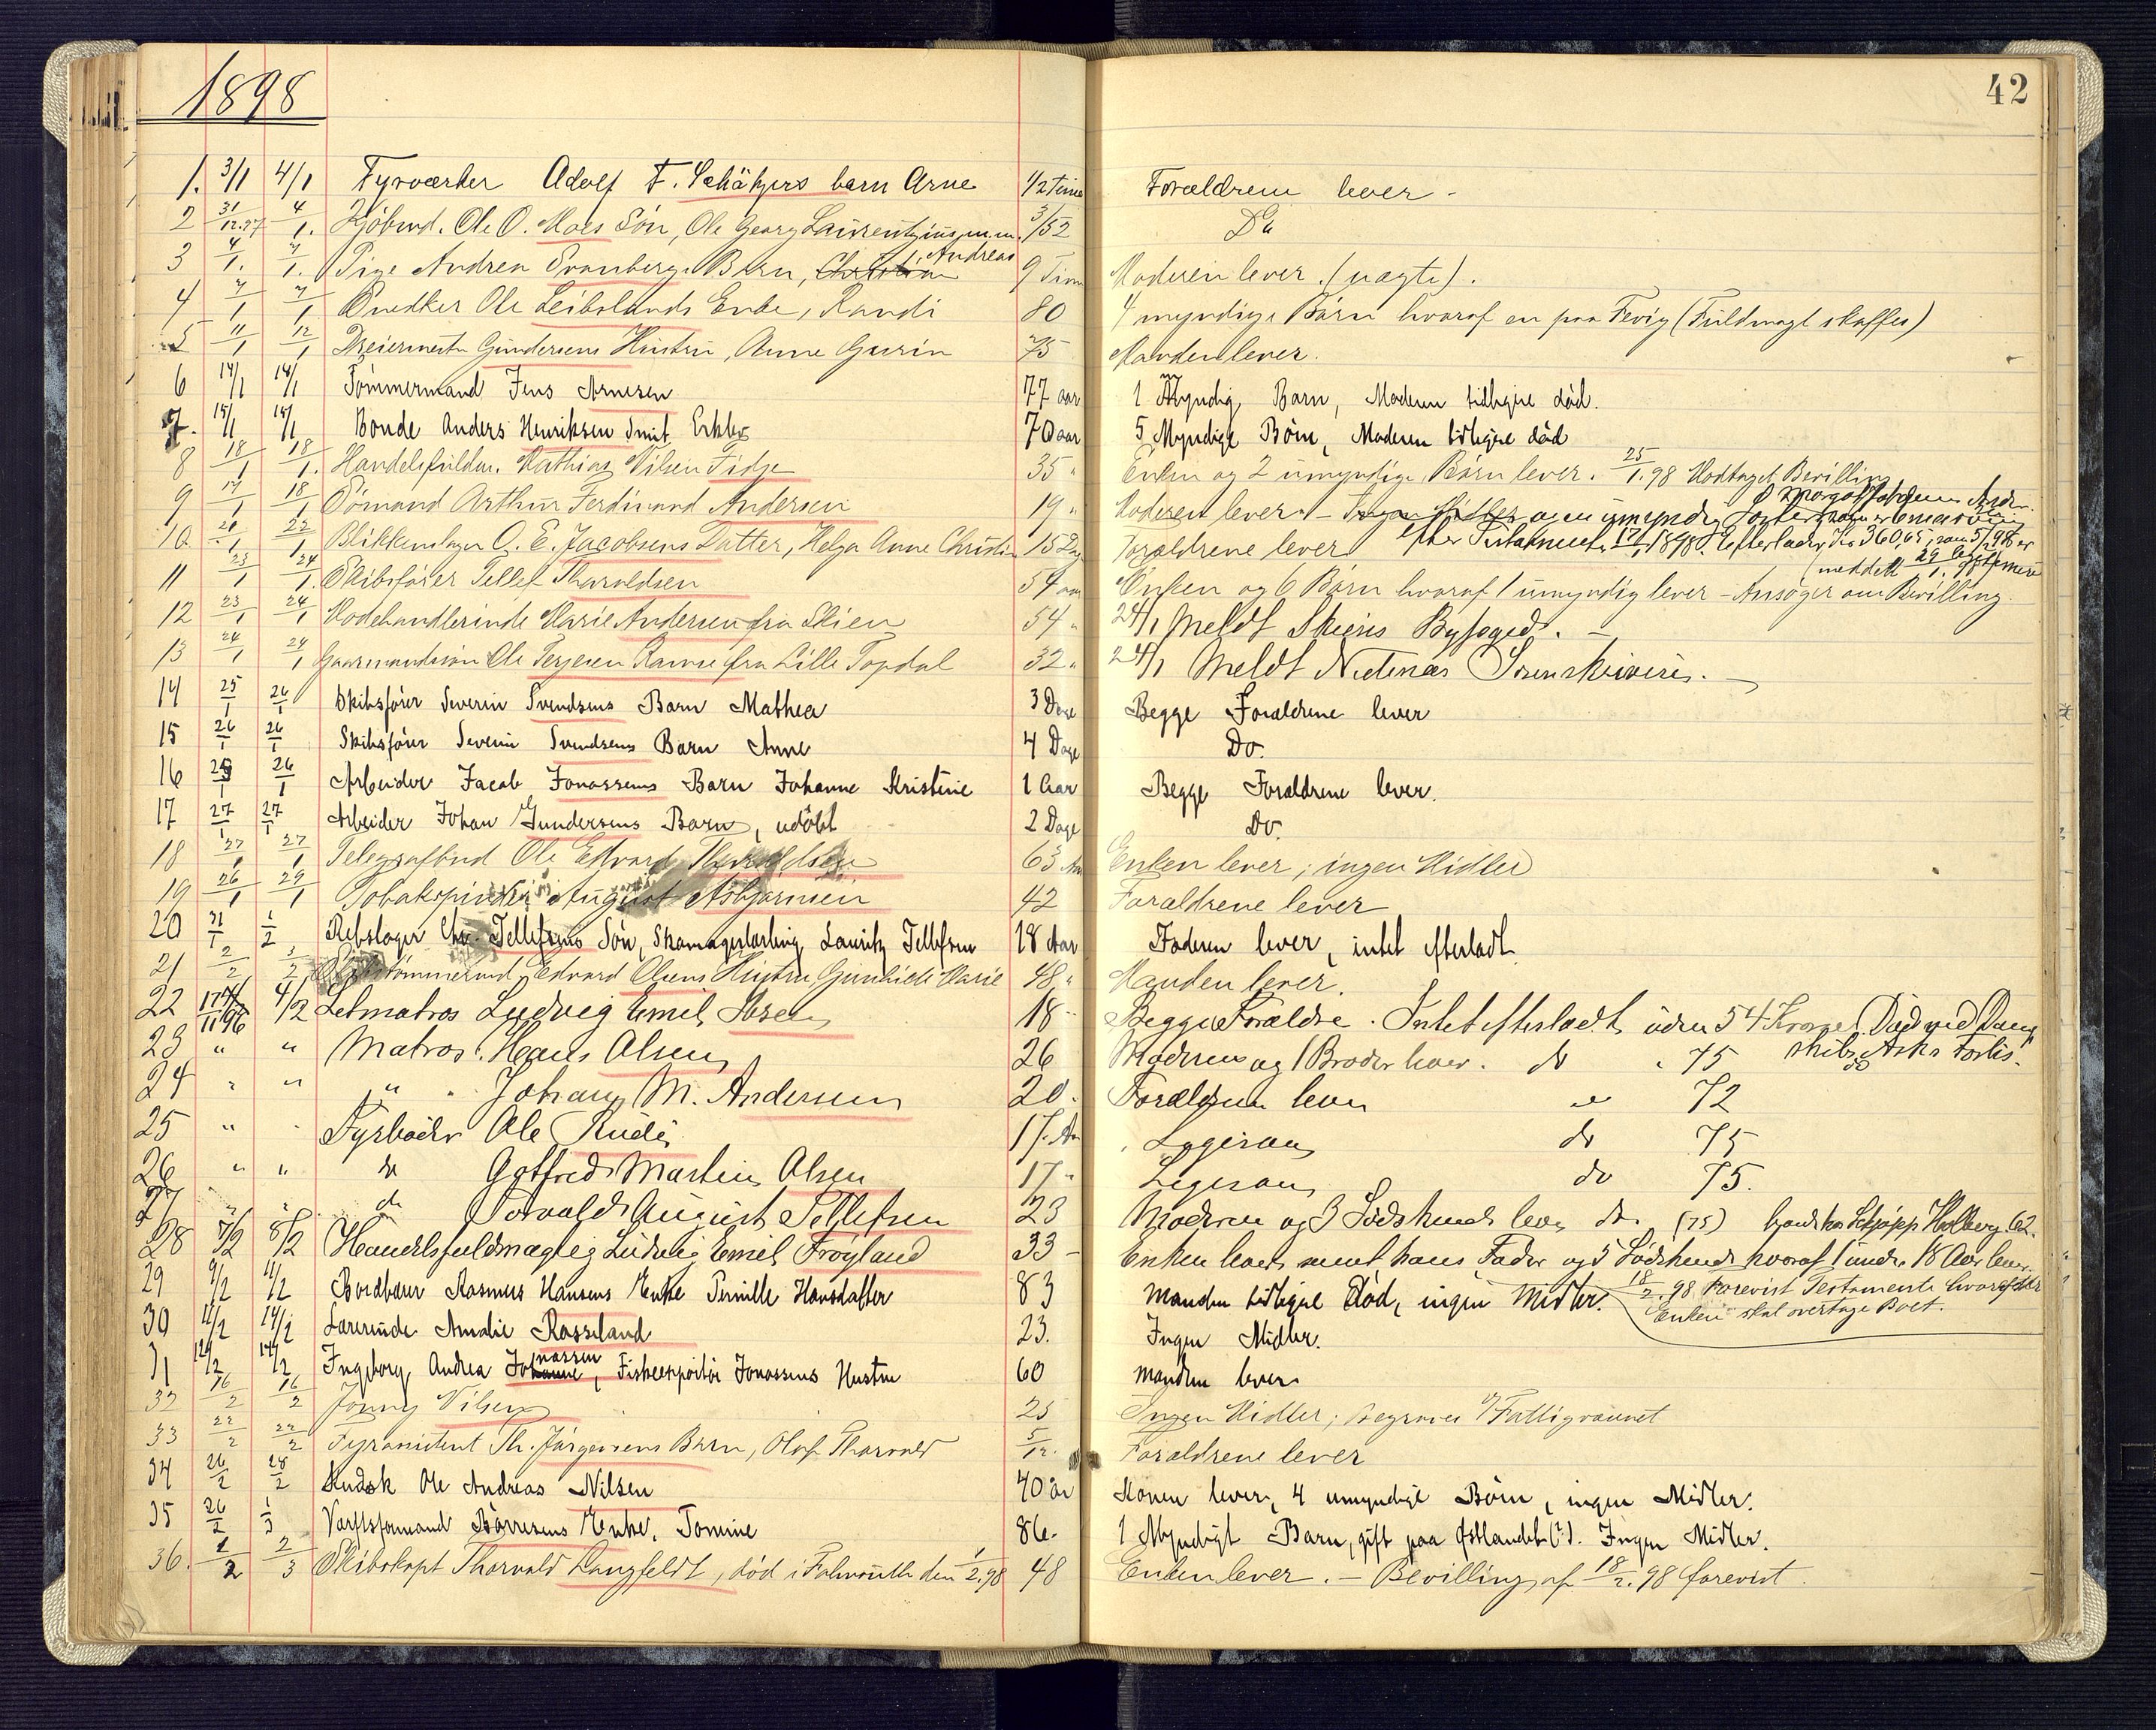 1898
42
1. 3/1 4/1 Fyrværker Adolf F. Schätzers barn Arne 1/2 Time Forældrene lever.
2 31/12.97 4/1. Kjöbmd. Ole O. Moes Sön, Ole Georg 3/52 Do
3 4/1. 7/1. Pige Andrea Svanbergs Barn, Andreas 9 Tim Moderen lever. (uægte).
4 7/1 7/1 Snedker Ole Leibslands Enke, Randi 80 4 myndige Börn hvoraf en paa Fevig (Fuldmagt skaffes)
5 11/1 12/1 Dreiermester Gundersens Hustru, Anne Gurin 75 Manden lever.
6 14/1 14/1 Tömmermand Jens Arnesen 77 aar 1 Myndig Barn, Moderen tidligere död.
7. 15/1 15/1 Bonde Anders Henriksen Smit, 70 aar 5 Myndige Börn, Moderen tidligere död
8 18/1 18/1. Handelsfuldm. Mathias Nilsen Fidje 35 " Enken og 2 umyndige Börn lever. 25/1.98 Modtaget Bevilling
9 17/1 18/1 Sömand Arthur Ferdinand Andersen 19 " Moderen lever. -
10 20/1 22/1 Blikkenslager O. E. Jacobsens Datter, Helga Anne 15 Forældrene lever
efter Testamente 17/1 1898.
meddelt 29/1.
11 23/1 24/1. Skibsförer Tellef Tharaldsen 54 aar Enken og 6 Börn hvoraf 1 umyndig lever - Ansöger om Bevilling
12 23/1 24/1 Modehandlerinde Marie Andersen fra Skien 54 " 24/1 Meldt Skiens Byfoged. -
13 24/1 24/1 Ole Terjesen Ramse fra Lille Topdal 32 " 24/1 Meldt Nedenæs Sorenskriveri. -
14 25/1 26/1 Skibsförer Severin Svendsens Barn Mathea 3 Dage Begge Forældrene lever
15 26/1 26/1 Skibsförer Severin Svendsens Barn Anne 4 Dage Do.
16 25/1 26/1 Arbeider Jacob Jonassens Barn Johanne Kristine 1 Aar Begge Forældrene lever.
17 27/1 27/1 Arbeider Johan Gundersens Barn, udöbt 2 Dage Do.
18 27/1 27/1 Telegrafbud Ole Edvard Tharaldsen 63 Aar Enken lever; ingen Midler
19 26/1 29/1 Tobakspinder August Asbjörnsen 42 Forældrene lever
20 31/1 1/2 Rebslager Chr. Tellefsens Sön, Skomagerlærling Lauritz Tellefsen 18 Aar Faderen lever, intet efterladt.
21 2/2 3/2 Skibstömmermd. Edvard Olsens Hustru Gunhild Marie 48 " Manden lever.
22 17/11 96 4/2 Letmatros Ludvig Emil 18 Begge Forældre. Intet efterladt uden 54 Kroner. Död ved Damp
23 " " Matros Hans Olsen 26 Moderen og 1 Broder lever. do 75 skibet Asks Forlis.
24 " " " Johan M. Andersen 20. Forældrene lever " 72
25 " Fyrböder Ole Rudi 17. Aar Ligesaa do 75
26 " " do Gotfred Martin Olsen 17 " Ligesaa do 75.
27 " " do Torvald August Tellefsen 23 Moderen og 3 Södskende lever do. (75)
28 7/2 8/2 Handelsfuldmægtig Ludvig Emil Fröyland 33 - Enken lever samt hans Fader og 5 Södskende hvoraf 1 under 18 Aar lever.
18/2.98 Forevist Testamente hvorefter
Enken skal overtage Boet.
29 9/2 11/2 Rasmus Hansens Enke Pernille Hansdatter 83 Manden tidligere Död, ingen Midler.
30 11/2 14/2 Lærerinde Amalie Rosseland 23. Ingen Midler.
31 12/2 14/2 Ingeborg Andrea Jonassen, Fiskeexportör Jonassens Hustru 60 Manden lever
32 16/2 16/2 Jonny Nilsen 25 Ingen Midler; Begraves af Fattigvæsnet
33 22/2 22/2 Fyrassistent Th. Jörgensens Barn, Olaf Thorvald 5/12. Forældrene lever
34 26/2 28/2 Ole Andreas Nilsen 40 år Konen lever, 4 umyndige Börn, ingen Midler.
35 26/2 1/3 Værftsformand Börresens Enke, Tomine 86. 1 Myndigt Barn, gift paa Östlandet (?). Ingen Midler.
36. 1/2 2/3 Skibskapt Thorvald Langfeldt, död i Falmouth den 1/2.98 48 Enken lever. - Bevilling af 18/2.98 forevist.